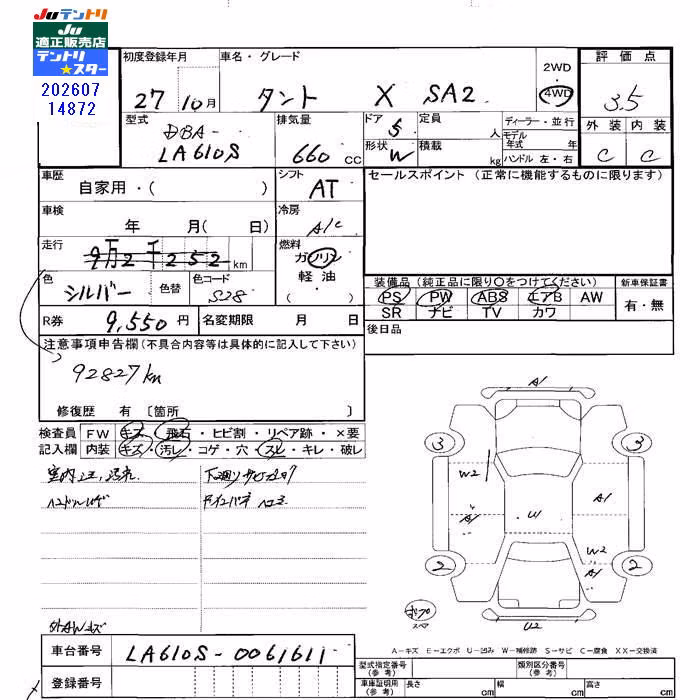 JUテントリ
JU
適正販売店
テントリ
★スター
202607
14872
初度登録年月 車名・グレード 2WD・4WD 評価点
27 10月 タント X SA2 3.5
型式 DBA- LA610S 排気量 660 CC ドア 5 形状 W 定員 人 積載 kg ディーラー・並行 モデル年式 年 ハンドル 左・右 外装 内装
C C
車歴 自家用・( ) シフト AT セールスポイント (正常に機能するものに限ります)
車検 年 月( 日) 冷房 A/C
走行 9万2千252 km 燃料 ガソリン 軽油 ( )
色 シルバー 色替 色コード S28
装備品 (純正品に限り○をつけてください) 新車保証書
PS PW ABS エアB AW 有・無
SR ナビ TV カワ
R券 9,550円 名変期限 月 日 後日品
注意事項申告欄 (不具合内容等は具体的に記入して下さい)
92827km
修復歴 有 〔箇所 〕
検査員 FW キズ・飛石・ヒビ割・リペア跡・×要
記入欄 内装 キズ・汚レ・コゲ・穴・スレ・キレ・破レ
A1
3 3
W2
A1 A1
U1
W2
2 A1 2
U2
A-キズ E-エクボ U-凹み W-補修跡 S-サビ C-腐食 XX-交換済
車台番号 LA610S-0061611
登録番号
型式指定番号 (参考) 類別区分番号 (参考)
車庫証明用 (参考) 長さ cm 幅 cm 高さ cm